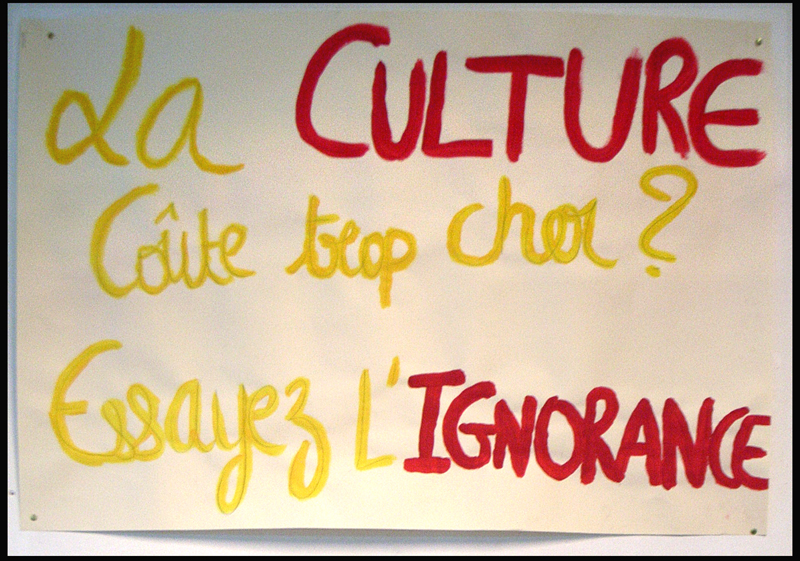 La CULTURE
Coûte trop cher ?
Essayez L'IGNORANCE